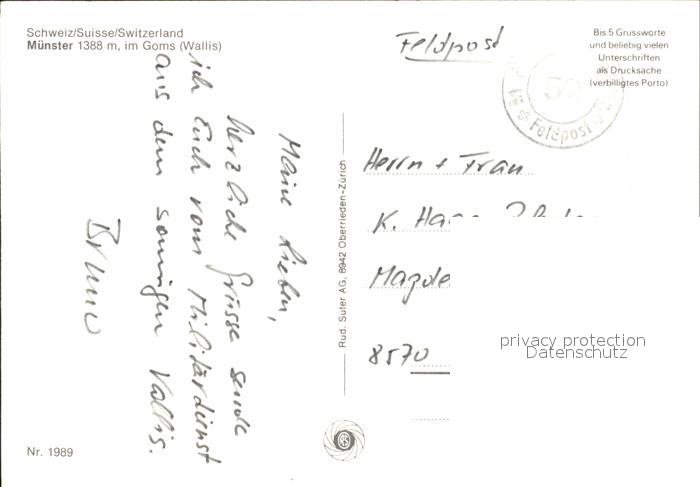 Schweiz/Suisse/Switzerland
Münster 1388 m, im Goms (Wallis)
Meine Lieben,
herzliche Grüsse sende
ich Euch vom Militärdienst
aus dem sonnigen Wallis.
Bruno
Nr. 1989
Rud. Suter AG, 8942 Oberrieden-Zürich
Feldpost
Bis 5 Grussworte
und beliebig vielen
Unterschriften
als Drucksache
(verbilligtes Porto)
Feldpost
Herrn + Frau
K.
8570
privacy protection
Datenschutz